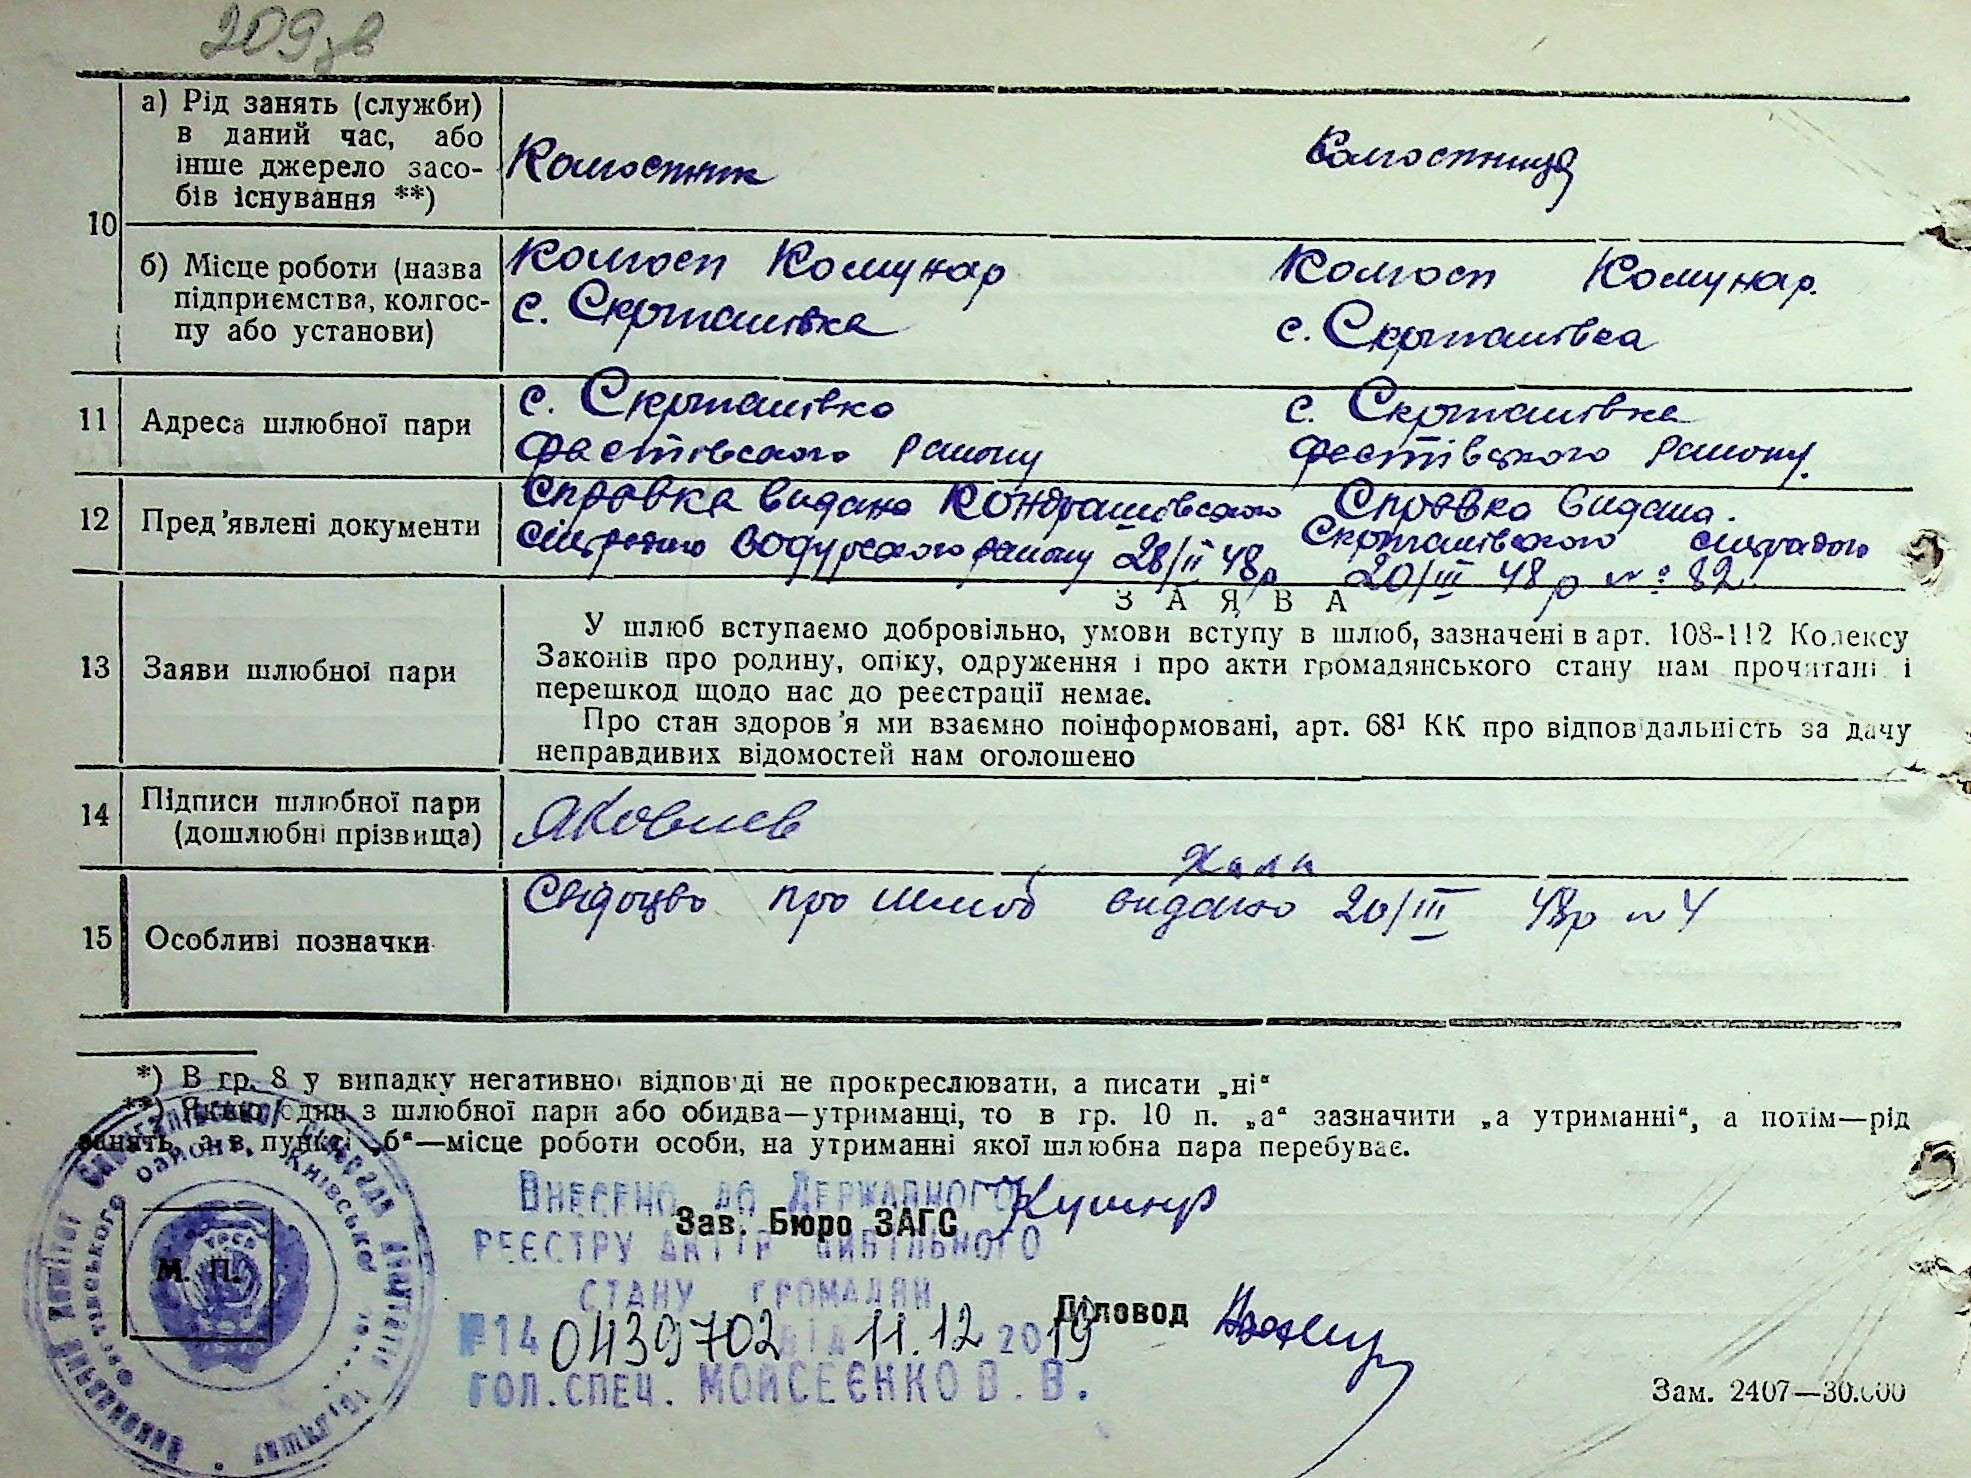 209зв
а) Рід занять (служби)
в даний час, або
інше джерело засо-
бів існування **)
Колгоспник
Колгоспниця
10
б) Місце роботи (назва
підприємства, колгос-
пу або установи)
Колгосп Комунар
с. Скрипалівка
Колгосп Комунар.
с. Скрипалівка
11 Адреса шлюбної пари
с. Скрипалівка
Фастівського району
с. Скрипалівка
Фастівського району.
12 Пред'явлені документи
Справка видана Кондрашівского
сільрадою району 28/II 48р
Справка видана.
Скрипалівского сільрадою
20/III 48р №: 82
13 Заяви шлюбної пари
ЗАЯВА
У шлюб вступаємо добровільно, умови вступу в шлюб, зазначені в арт. 108-112 Кодексу
Законів про родину, опіку, одруження і про акти громадянського стану нам прочитані і
перешкод щодо нас до реєстрації немає.
Про стан здоров'я ми взаємно поінформовані, арт. 68¹ КК про відповідальність за дачу
неправдивих відомостей нам оголошено
14 Підписи шлюбної пари
(дошлюбні прізвища)
Яковлев
15 Особливі позначки
Свідоцво про шлюб видано 20/III 48р № 4
*) В гр. 8 у випадку негативної відповіді не прокреслювати, а писати „ні“
**) Якщо один з шлюбної пари або обидва—утриманці, то в гр. 10 п. „а“ зазначити „а утриманні“, а потім—рід
занять, а в пункті „б“—місце роботи особи, на утриманні якої шлюбна пара перебуває.
Внесено до Державного
реєстру актів цивільного
стану громадян
№14 0439702 від 11.12 2019
гол.спец. Мойсеєнко В. В.
Зав. Бюро ЗАГС Кушнір
Діловод
М. П.
Зам. 2407—30.000